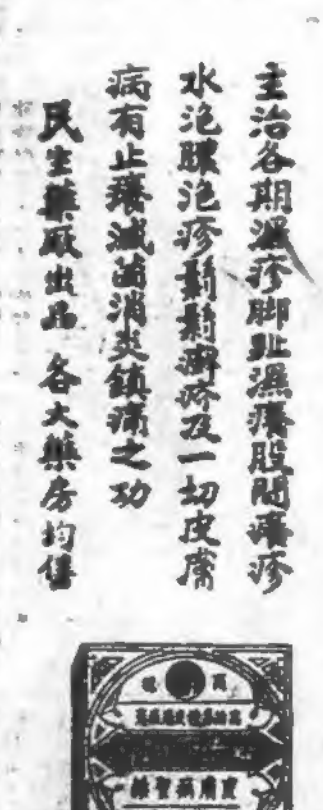 主治各期濕疹脚趾濕癢股間癢疹
水泡膿泡疹鬍鬚癬疹及一切皮膚
病有止癢滅菌消炎鎮痛之功
民生藥厰出品 各大藥房均售